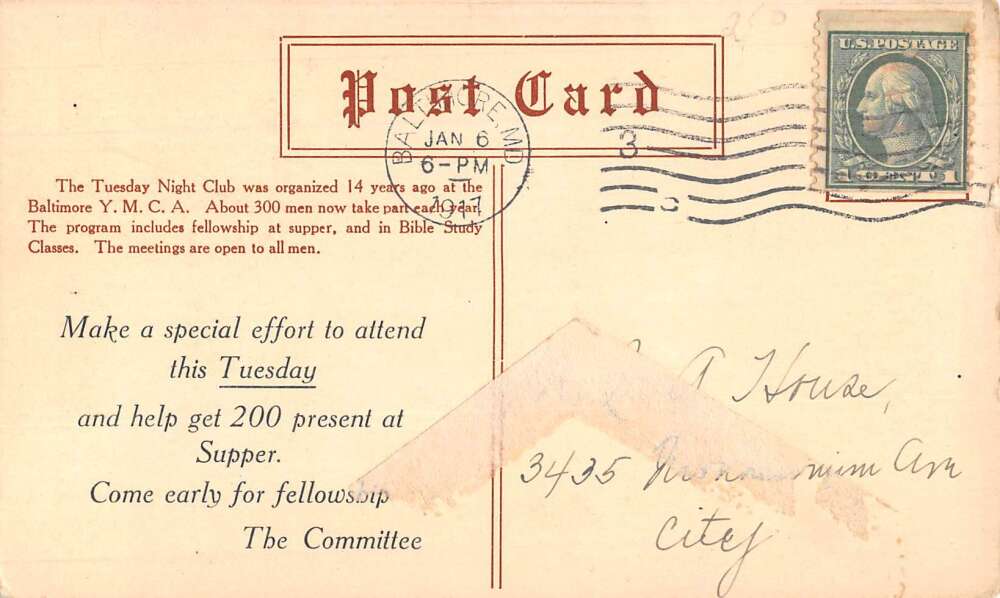 Post Card
U.S. POSTAGE
1 1
BALTIMORE, MD
JAN 6
6-PM
1917
3
The Tuesday Night Club was organized 14 years ago at the
Baltimore Y. M. C. A. About 300 men now take part each year.
The program includes fellowship at supper, and in Bible Study
Classes. The meetings are open to all men.
Make a special effort to attend
this Tuesday
and help get 200 present at
Supper.
Come early for fellowship
The Committee
A House,
3435
City